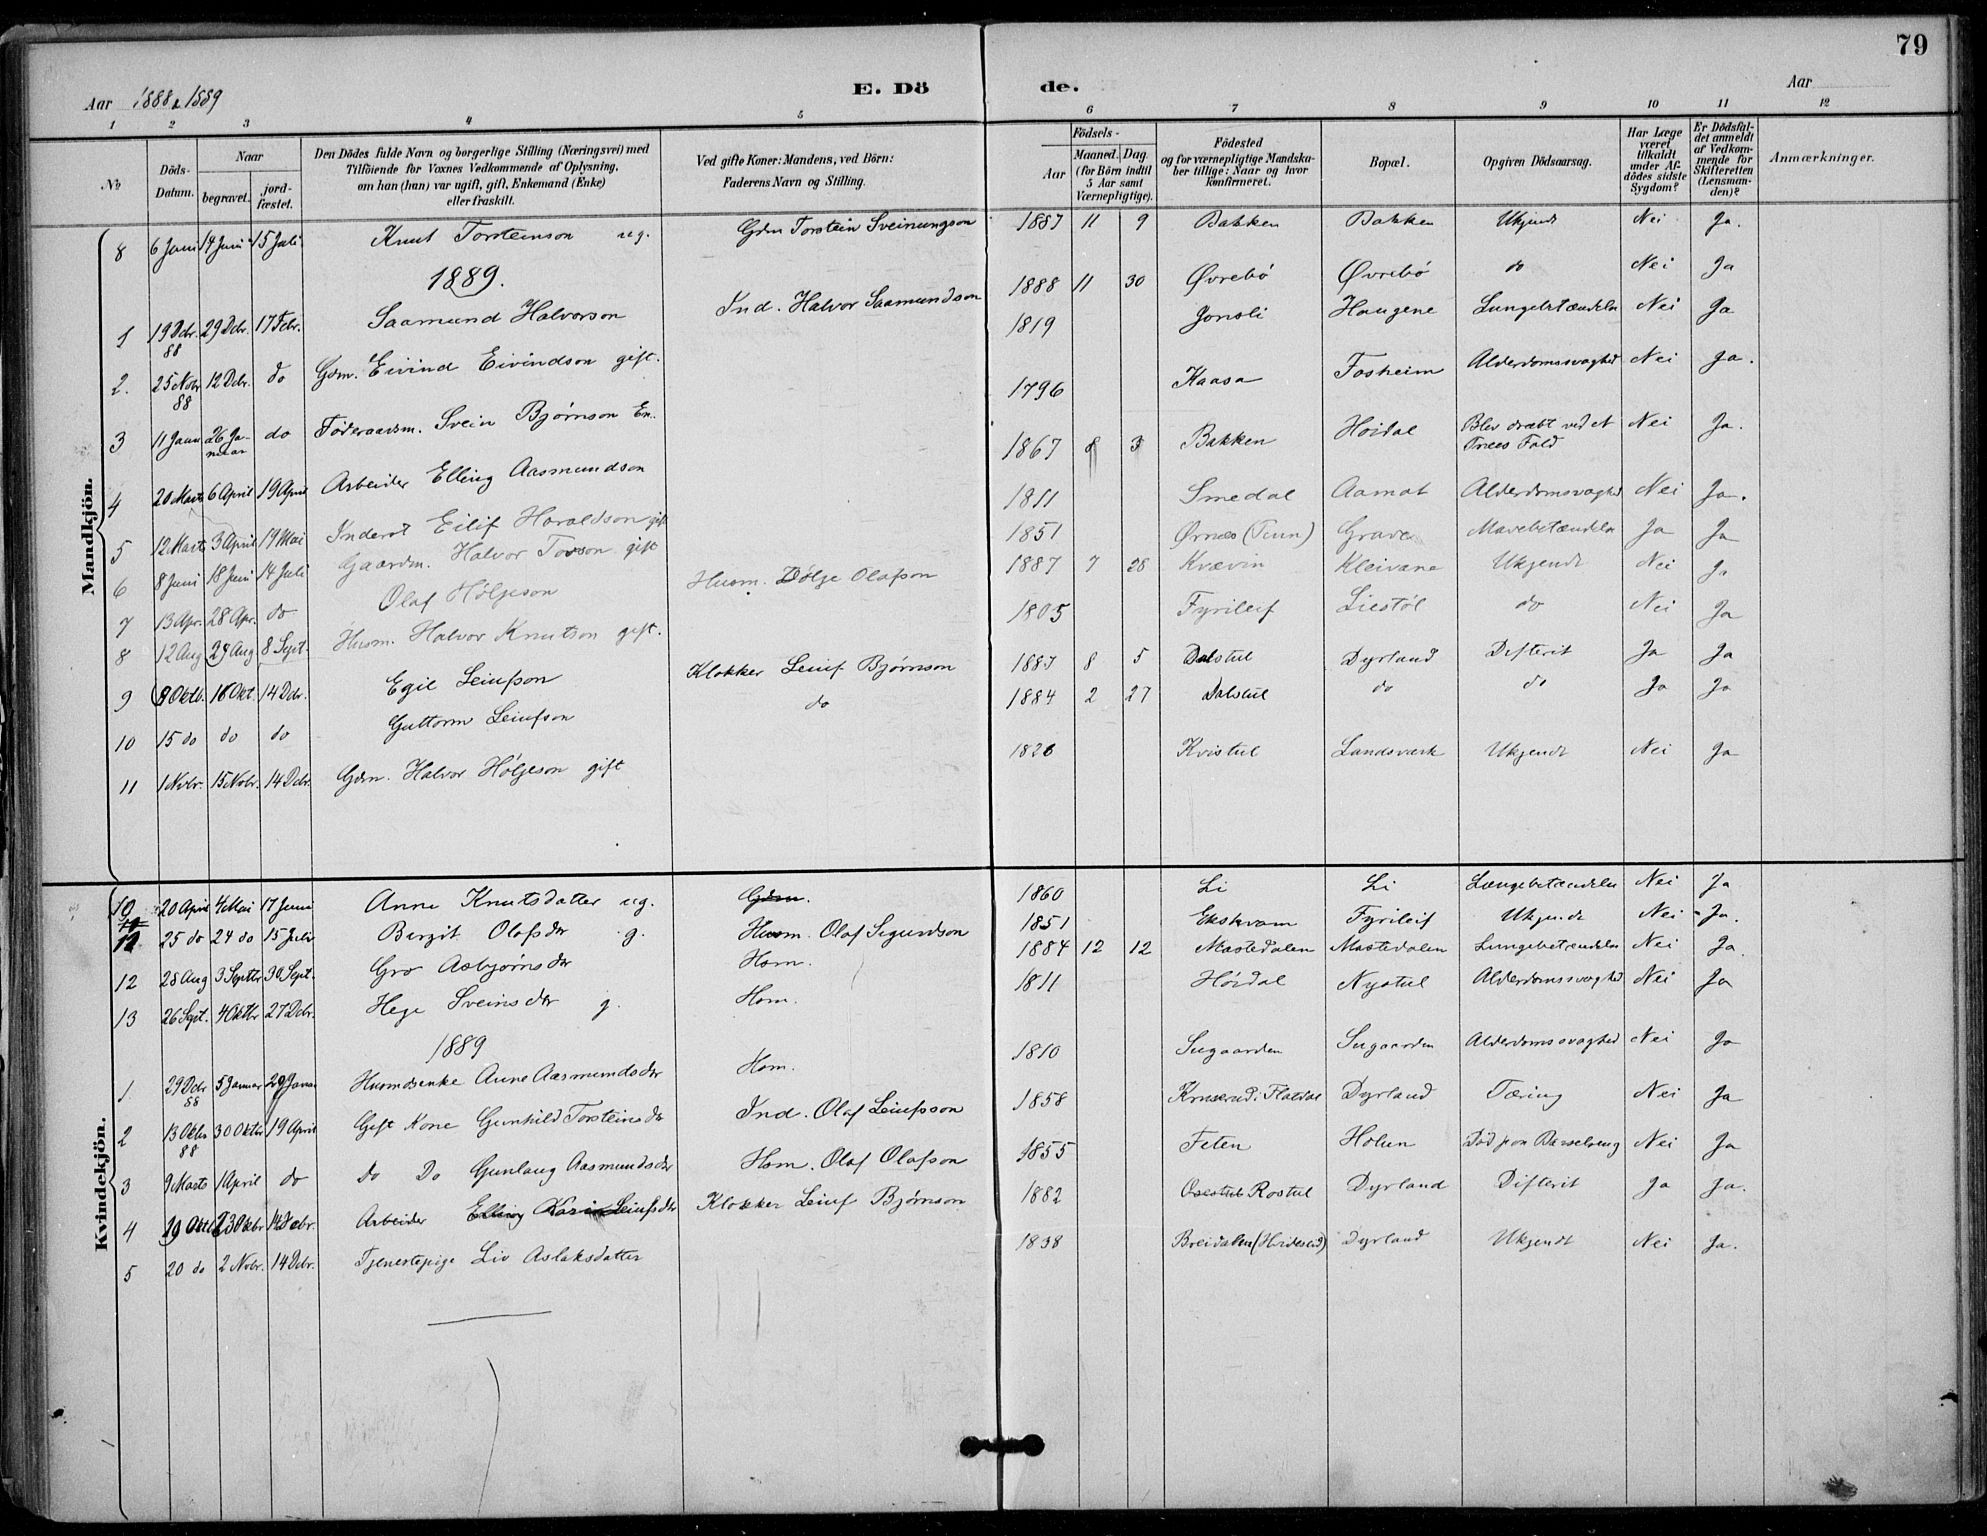 79
Aar 1888 & 1889 E. Dö de. Aar
1 2 3 4 5 6 7 8 9 10 11 12
No
Döds-Datum.
Naar
begravet.
jord-fæstet.
Den Dödes fulde Navn og borgerlige Stilling (Næringsvei) med
Tilföiende for Voxnes Vedkommende af Oplysning,
om han (hun) var ugift, gift, Enkemand (Enke)
eller fraskilt.
Ved gifte Koner: Mandens, ved Börn:
Faderens Navn og Stilling.
Födsels-
Aar
Maaned. Dag.
(for Börn indtil
5 Aar samt
Værnepligtige).
Födested
og for værnepligtige Mandska-
ber tillige: Naar og hvor
konfirmeret.
Bopæl.
Opgiven Dödsaarsag.
Har Læge
været
tilkaldt
under Af-
dödes sidste
Sygdom?
Er Dödsfal-
det anmeldt
af Vedkom-
mende for
Skifteretten
(Lensman-
den)?
Anmærkninger.
Mandkjön.
8 6 Juni 14 Juni 15 Juli Knut Torsteinson ug. Gdm Torstein Sveinungson 1887 11 9 Bakken Bakken Ukjendt Nei Ja.
1889.
1 19 Dcbr. 88 29 Dcbr. 17 Febr. Saamund Halvorson Ind. Halvor Saamundson 1888 11 30 Øvrebö Øvrebö do Nei Ja
2. 25 Novbr 88 12 Dcbr. do Gdm. Eivind Eivindson gift. 1819 Jonsli Haugene Lungebetændelse Nei Ja
3 11 Janu 26 Januar do Föderaadsm. Svein Bjørnson En. 1796 Kaasa Fosheim Alderdomssvaghed Nei Ja.
4 20 Marts 6 April 19 April Arbeider Elling Aasmundson 1867 8 3 Bakken Høidal Blev dræbt ved et Træes Fald Nei Ja.
5 12 Marts 3 April 19 Mai Inderst Eilif Haraldson gift 1811 Smedal Aamot Alderdomsvaghed Nei Ja.
6 8 Juni 18 Juni 14 Juli Gaardm. Halvor Tovson gift 1851 Ørnes (Tinn) Grave Mavebetændelse Ja Ja
7 13 Apr. 28 Apr. do Olaf Hölgeson Husm. Hölge Olafson 1887 7 28 Kvævin Kleivane Ukjendt Nei Ja
8 12 Aug 24 Aug 8 Sept. Husm. Halvor Knutson gift. 1805 Fyrileif Liestöl do Nei Ja
9 8 Oktb. 18 Okt. 14 Dcbr. Egil Leiufson Klokker Leiuf Bjørnson 1887 8 5 Dalstul Dyrland Difterit Ja Ja
10 15 do do do Guttorm Leiufson do 1884 2 27 Dalstul do do Ja Ja
11 1 Novbr. 15 Novbr. 14 Dcbr. Gdm. Halvor Hølgeson gift 1826 Kvistul Landsverk Ukjendt Nei Ja
Kvindekjön.
10 20 April 4 Mai 17 Juni Anne Knutsdatter ug. Gdm. 1860 Li Li Lungebetændelse Nei Ja
11 25 do 24 do 15 Juli Birgit Olafsdtr g. Husm. Olaf Sigurdson 1851 Ekskvam Fyrileif Ukjendt Nei Ja.
12 28 Aug 3 Septbr 30 Sept. Gro Asbjørnsdtr Hsm. 1884 12 12 Mastedalen Mastedalen Lungebetændelse Nei Ja.
13 26 Sept. 4 Oktbr 27 Dcbr. Hege Sveinsdtr g. Hsm. 1811 Høidal Nystul Alderdomssvaghed Nei Ja
1889
1 29 Dcbr 88 5 Januar 29 Janu Husmdsenke Anne Aasmundsdtr Hsm. 1810 Sugaarden Sugaarden Alderdomssvaghed Nei Ja
2 13 Oktbr 88 30 Oktbr 19 April Gift Kone Gunhild Torsteinsdtr Ind. Olaf Leiufsson 1858 Knserud i Flatdal Dyrland Tæring Nei Ja
3 9 Marts 1 April do Do Do Gunlaug Aasmundsdtr Hsm. Olaf Olafson 1855 Feten Holen Död paa Barselseng Nei Ja
4 19 Oktb 23 Oktbr 14 Dcbr. Arbeider Elling Karin Leiufsdtr Klokker Leiuf Bjørnson 1882 Rostul Dyrland Difterit Ja Ja.
5 20 do 2 Novbr. 14 Dcbr. Tjenestepige Liv Aslaksdatter 1838 Breidalen (Hvideseid) Dyrland Ukjendt Nei Ja.